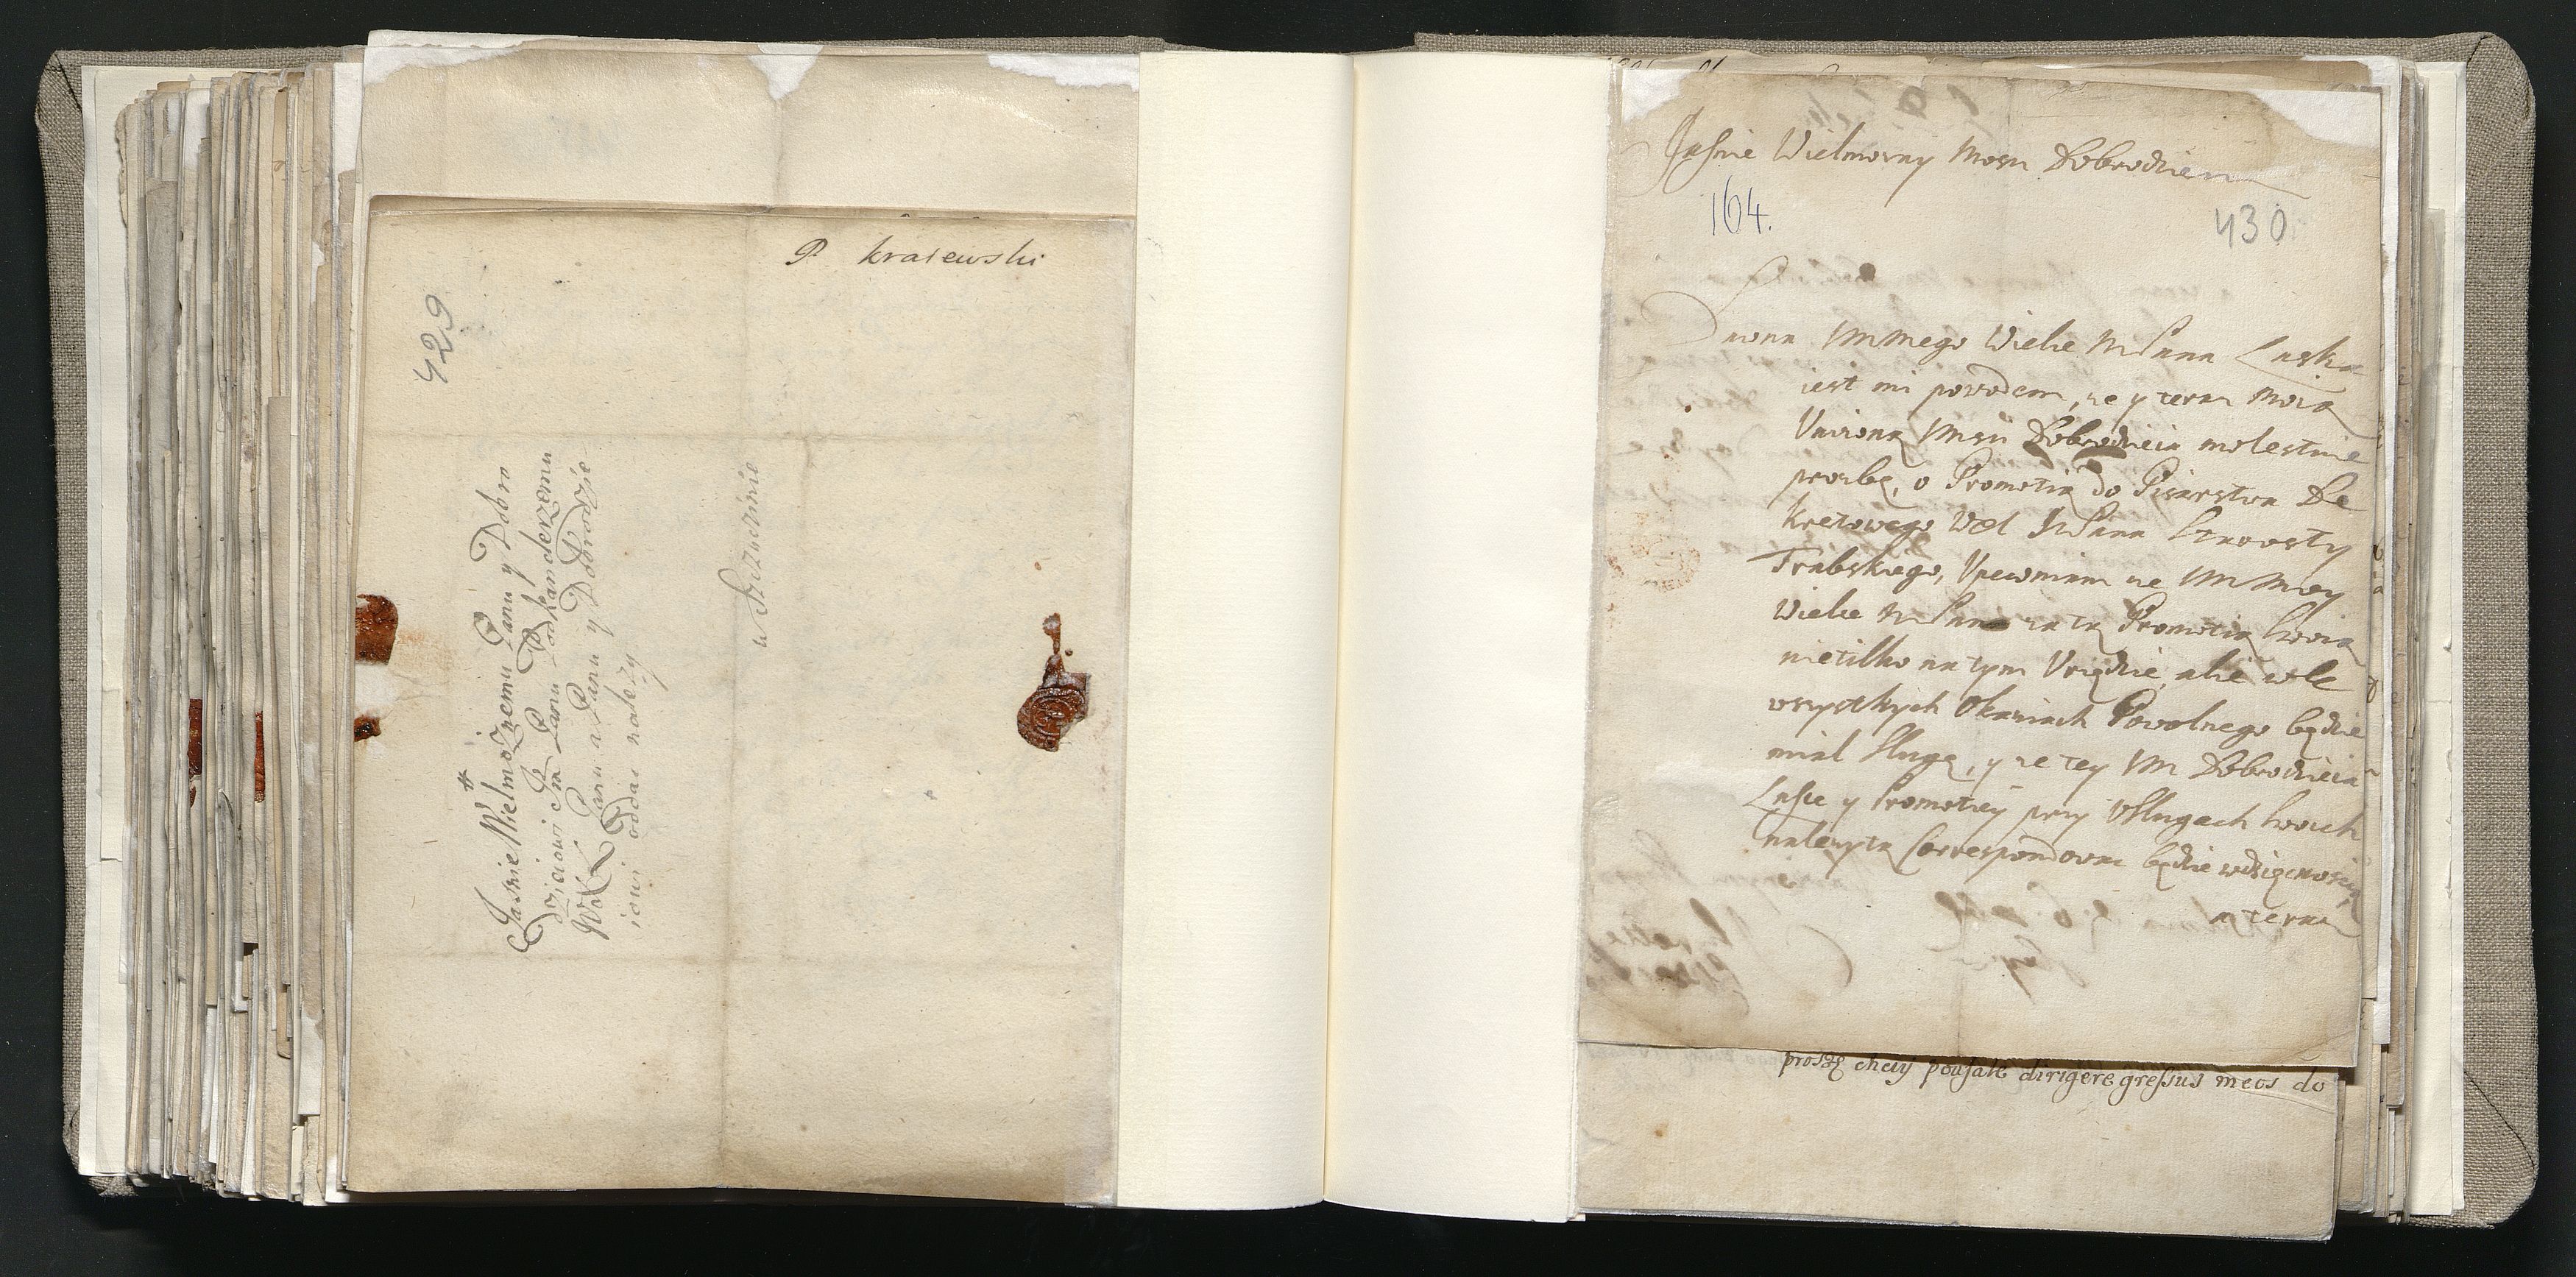 P krajewski
429
Jasnie Wielmożnemu Panu y Dobro
dzieiowi Jm Panu Podkanclerzemu
WXL Panu a Panu y Dobrodzie
iowi oddac należy
w Szczuczinie
Jasnie Wielmozny Mosci Dobrodzieiu
164.
430
Dawna WMmego Wielce MPana Laska
iest mi powodem, ze y teraz moią
Vnizoną WMsci Dobrodzieia molestuie
prozbą, o Promotią do Pisarstwa De
kretowego WXL JMPana Starosty
Trabskiego, Vpewniam ze WM Moy
Wielce MPan za tą Promotią swoią
nietilko na tym Vrzędzie, ale we
wszystkych Okaziach Powolnego będzie
miał Sługę, y ze tey WM Dobrodzieia
Łasce y Promotiey przy Vsługach swoich
nalezytą Correspondowac będzie wdzięcznoscią,
a teraz
proszę chciy poufale dirigere gressus meos do